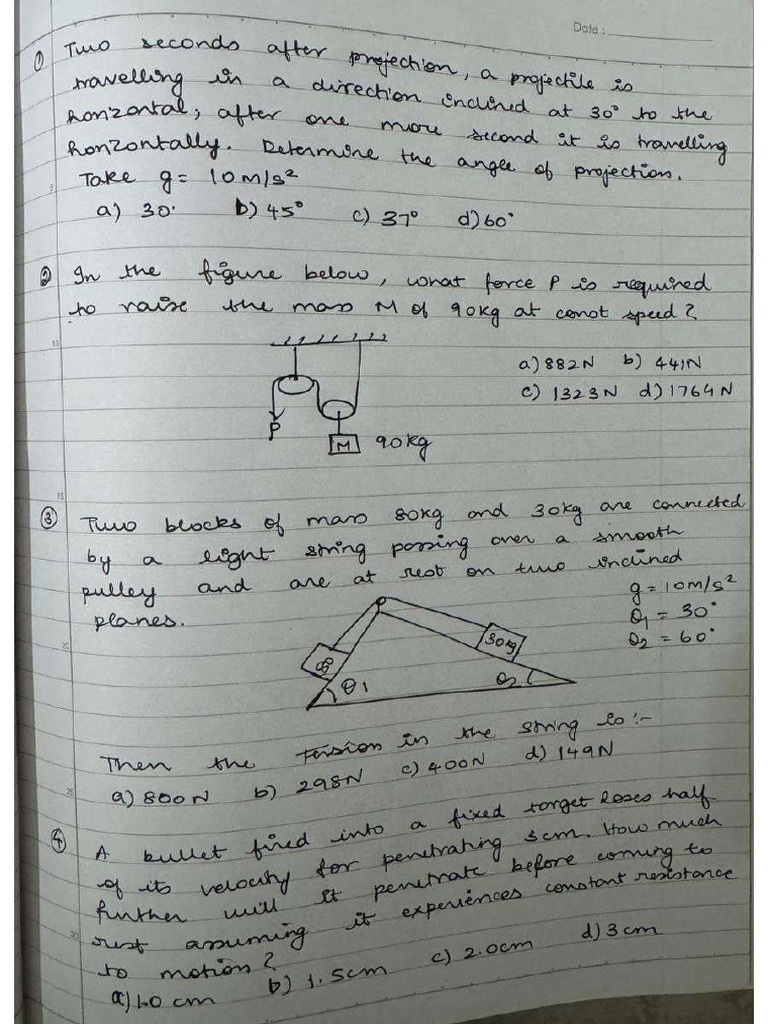 Date :
① Two seconds after projection, a projectile is
travelling in a direction inclined at 30° to the
horizontal, after one more second it is travelling
horizontally. Determine the angle of projection.
Take g = 10m/s²
a) 30° b) 45° c) 37° d) 60°
② In the figure below, what force P is required
to raise the mass M of 90kg at const speed?
a) 882N b) 441N
c) 1323N d) 1764N
P
M 90kg
③ Two blocks of mass 80kg and 30kg are connected
by a light string passing over a smooth
pulley and are at rest on two inclined
planes.
g = 10m/s²
θ₁ = 30°
θ₂ = 60°
80
30kg
θ₁
θ₂
Then the tension in the string is :-
a) 800N b) 298N c) 400N d) 149N
④ A bullet fired into a fixed target loses half
of its velocity for penetrating 3cm. How much
further will it penetrate before coming to
rest assuming it experiences constant resistance
to motion?
a) 1.0 cm b) 1.5cm c) 2.0cm d) 3cm
5
10
15
20
25
30